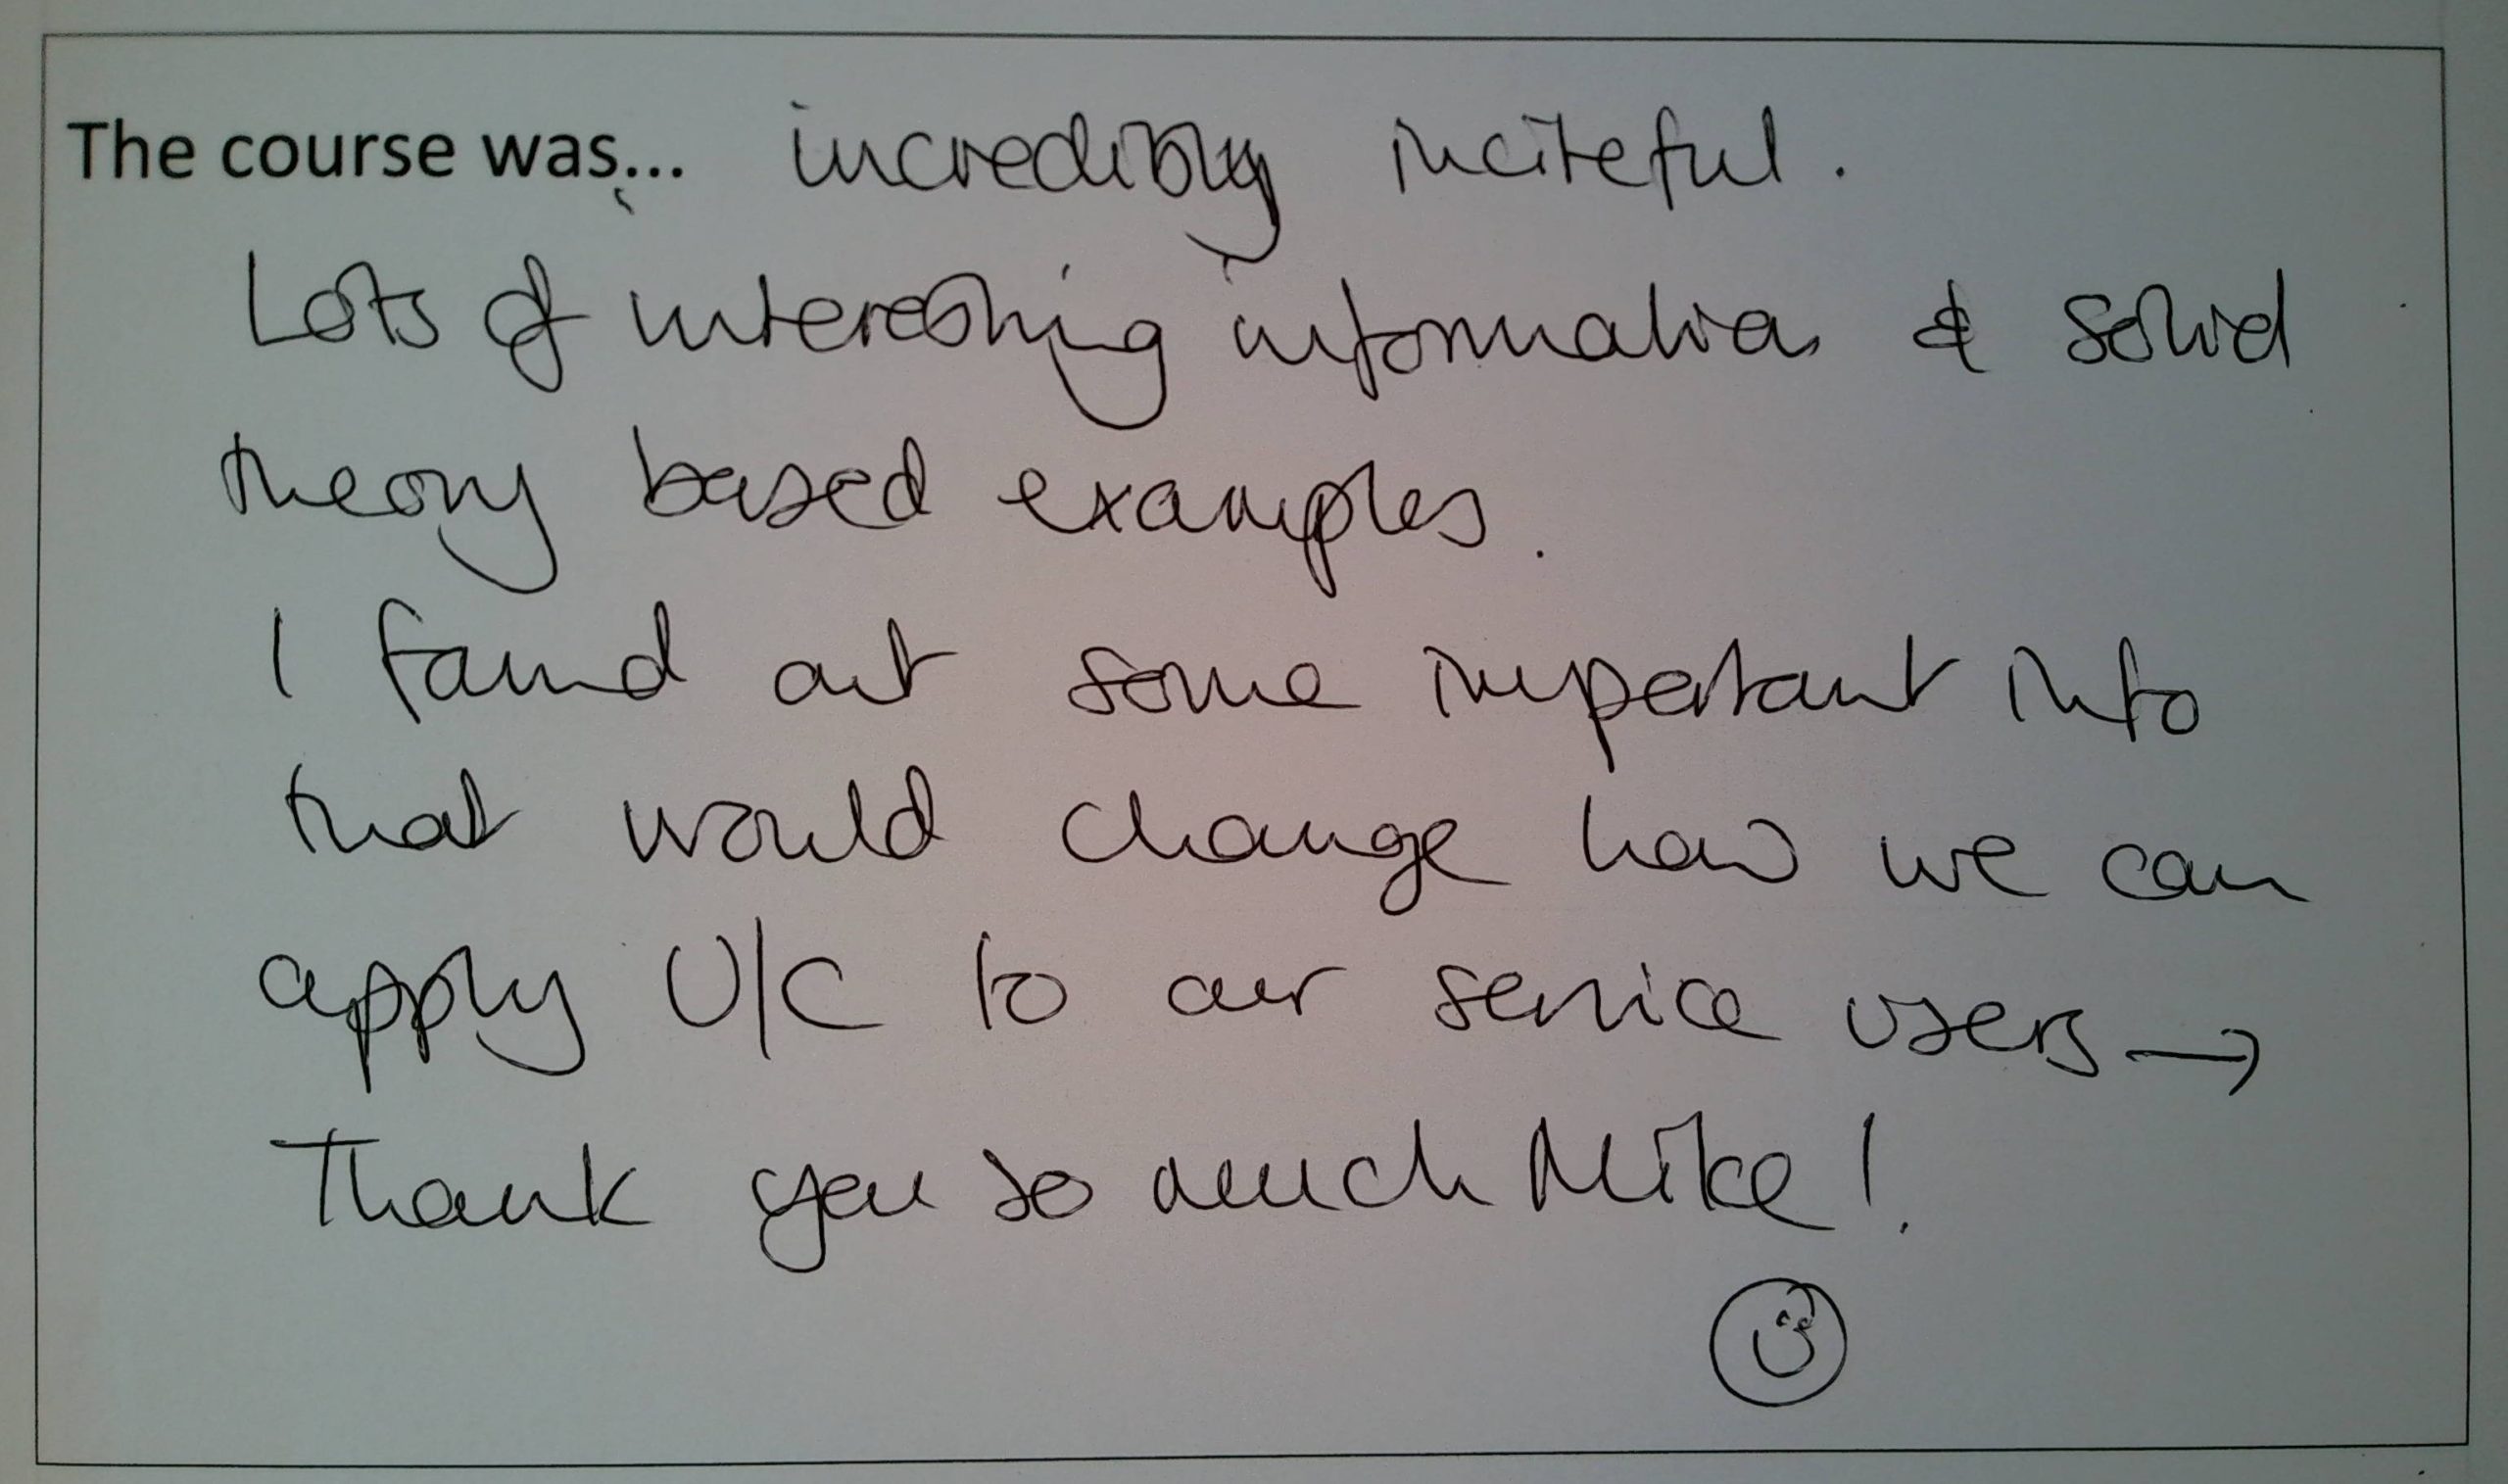 The course was... incredibly inciteful.
Lots of interesting information & solid
theory based examples.
I found out some important info
that would change how we can
apply U/C to our service users →
Thank you so much Mike!